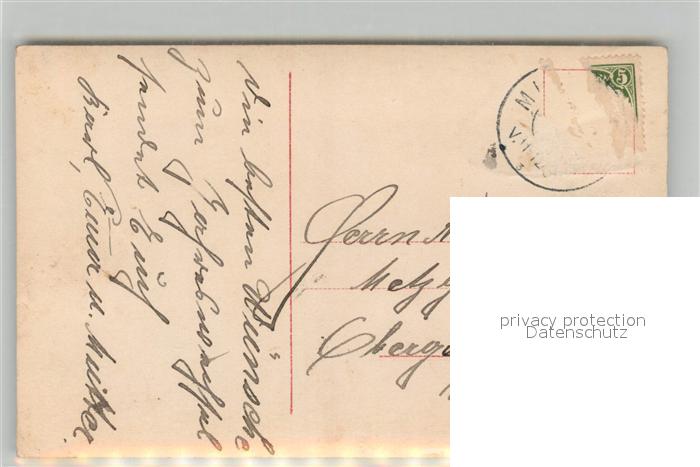 Die besten Wünsche
zum Jahreswechsel
sendet Euch
Karl, und u. Mutter.
5
Herrn
Metzg
Oberg
privacy protection
Datenschutz